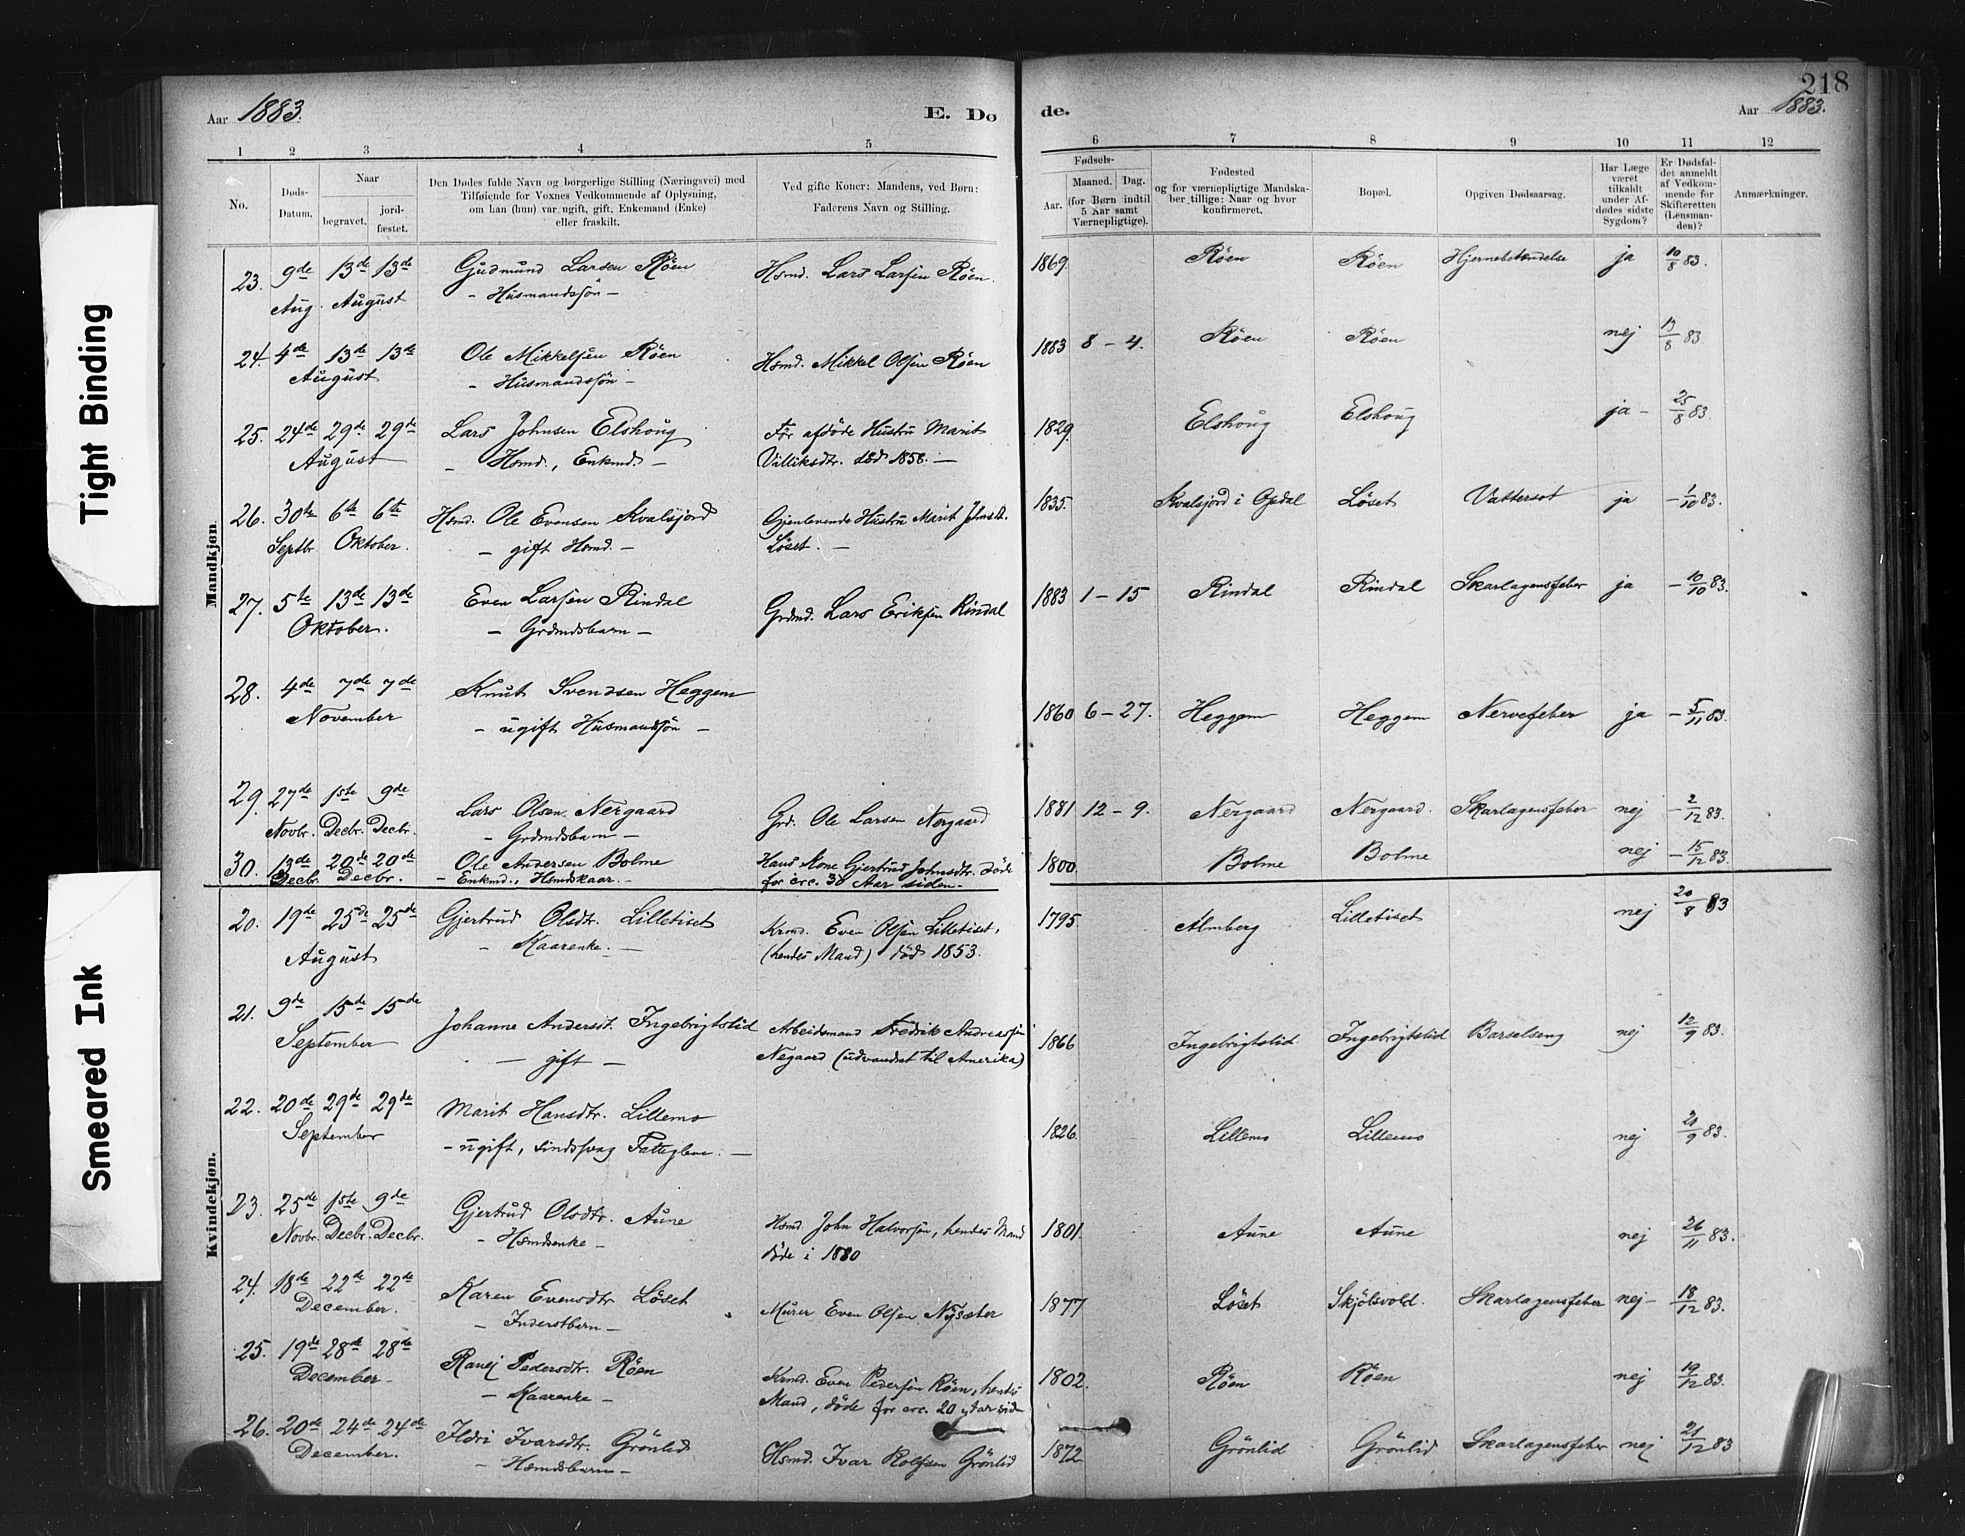 218
Aar 1883. E. Do de. Aar 1883.
1 2 3 4 5 6 7 8 9 10 11 12
No.
Døds-Datum.
Naar
begravet.
jord-fæstet.
Den Dødes fulde Navn og borgerlige Stilling (Næringsvei) med
Tilføiende for Voxnes Vedkommende af Oplysning,
om han (hun) var ugift, gift, Enkemand (Enke)
eller fraskilt.
Ved gifte Koner: Mandens, ved Børn:
Faderens Navn og Stilling.
Fødsels-
Aar.
Maaned. Dag.
(for Børn indtil
5 Aar samt
Værnepligtige).
Fødested
og for værnepligtige Mandska-
ber tillige: Naar og hvor
konfirmeret.
Bopæl.
Opgiven Dødsaarsag.
Har Læge
været
tilkaldt
under Af-
dødes sidste
Sygdom?
Er Dødsfal-
det anmeldt
af Vedkom-
mende for
Skifteretten
(Lensman-
den)?
Anmærkninger.
Mandkjøn.
23. 9de 13de 13de Gudmund Larsen Röen Hsmd. Lars Larsen Röen. 1869. Röen Röen Hjernebetændelse ja 10/8 83.
Aug. August - Husmandssön -
24. 4de 13de 13de Ole Mikkelsen Röen Hsmd. Mikkel Olsen Röen 1883 8 - 4. Röen Röen nej 13/8 83
August - Husmandssön -
25. 24de 29de 29de Lars Johnsen Elshoug Før afdöde Hustru Marit 1829. Elshoug Elshoug ja - 25/8 83.
August - Hsmd., Enkmd. - Villiksdtr. död 1858. -
26. 30te 6te 6te Hsmd. Ole Evensen Kvalsjord Gjenlevende Hustru Marit Johnsdt. 1835. Kvalsjord i Opdal Löset Vattersot ja - 1/10 83.
Septbr. Oktober. - gift Hsmd. - Löset. -
27. 5te 13de 13de Even Larsen Rindal Grdmd. Lars Eriksen Rindal 1883 1 - 15 Rindal Rindal Skarlagensfeber ja - 10/10 83.
Oktober. - Grdmdsbarn -
28. 4de 7de 7de Knut Svendsen Heggem 1860 6 - 27. Heggem Heggem Nervefeber ja - 5/11 83.
November - ugift Husmandssön -
29. 27de 1ste 9de Lars Olsen Nergaard Grd. Ole Larsen Nergaard 1881 12 - 9. Nergaard Nergaard. Skarlagensfeber nej - 2/12 83.
Novbr. Decbr. Decbr. - Grdmdsbarn -
30. 13de 20de 20de Ole Andersen Bolme Hans Kone Gjertrud Johnsdtr. döde 1800. Bolme Bolme nej - 15/12 83.
Decbr. Decbr. - Enkmd., Hsmdskaar. - for circ. 30 Aar siden. -
Kvindekjøn.
20. 19de 25de 25de Gjertrud Olsdtr. Lilletiset Krmd. Even Olsen Lilletiset, 1795. Almberg Lilletiset nej 20/8 83
August - Kaarenke. - (hendes Mand) död 1853.
21. 9de 15de 15de Johanne Andersdt. Ingebrigtslid Arbeidsmand Fredrik Andreassen 1866 Ingebrigtslid Ingebrigtslid Barselseng nej 12/9 83.
September - gift - Negaard (udvandret til Amerika)
22. 20de 29de 29de Marit Hansdtr. Lillemo 1826. Lillemo Lillemo nej 21/9 83.
September - ugift, sindssvag Fattiglem. -
23. 25de 1ste 9de Gjertrud Olsdtr. Aune Hsmd. John Halvorsen, hendes Mand 1801. Aune Aune nej 26/11 83.
Novbr. Decbr. Decbr. - Hsmdsenke - döde i 1880
24. 18de 22de 22de Karen Evensdtr Löset Murer Even Olsen Nysæter 1877 Löset Skjölsvold. Skarlagensfeber nej - 18/12 83.
December. - Inderstbarn -
25. 19de 28de 28de Ranej Pedersdtr. Röen Krmd. Even Pedersen Röen, hendes 1802. Röen Röen nej 19/12 83.
December - Kaarenke - Mand, döde for circ. 20 Aar siden
26. 20de 24de 24de Ildri Ivarsdtr. Grönlid Hsmd. Ivar Rolfsen Grönlid 1872 Grönlid Grönlid Skarlagensfeber nej 21/12 83
December. - Hsmdsbarn -
Tight Binding
Smeared Ink